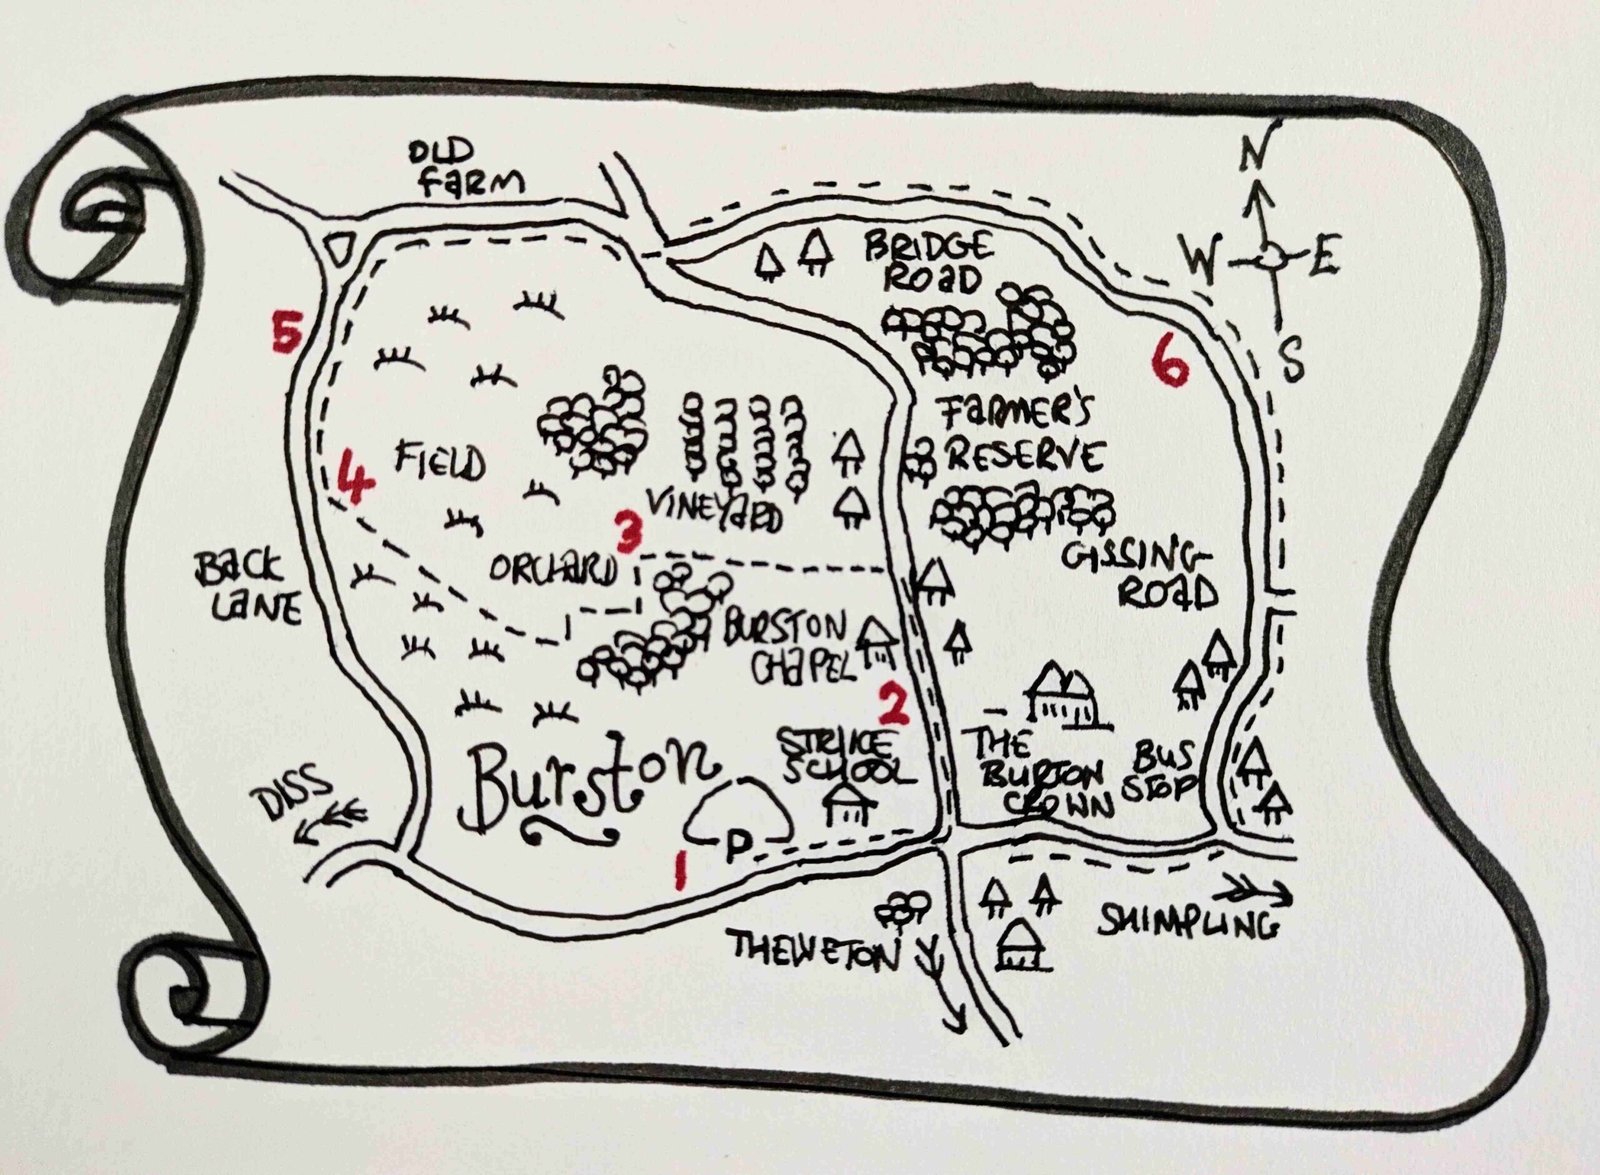 OLD
FARM
N
W E
S
BRIDGE
ROAD
5
6
FARMER'S
RESERVE
FIELD
4
VINEYARD
3
ORCHARD
GISSING
ROAD
BACK
LANE
BURSTON
CHAPEL
2
STRIKE
SCHOOL
THE
BURTON
CROWN
BUS
STOP
Burston
DISS
P
1
SHIMPLING
THELVETON